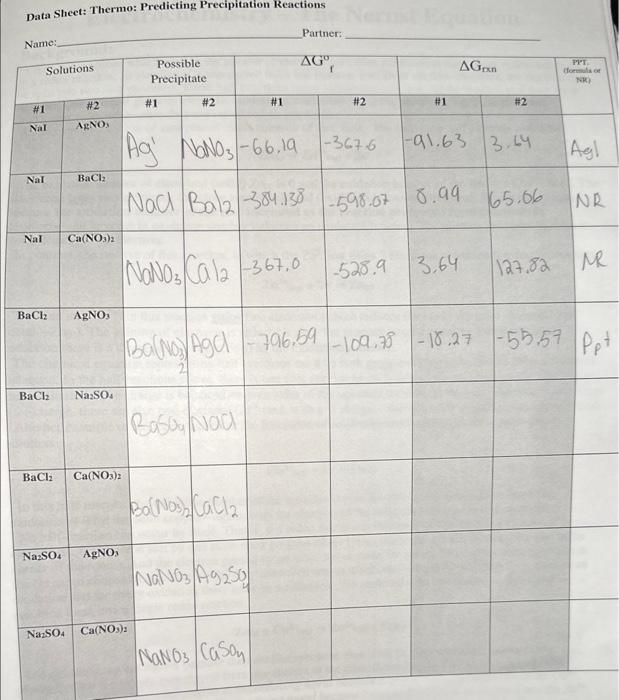 Data Sheet: Thermo: Predicting Precipitation Reactions
Name: Partner:
Solutions Possible Precipitate ΔG°f ΔGrxn PPT. (formula or NR)
#1 #2 #1 #2 #1 #2 #1 #2
NaI AgNO₃ AgI NaNO₃ -66.19 -367.6 -91.63 3.64 AgI
NaI BaCl₂ NaCl BaI2 -384.138 -598.07 8.99 65.06 NR
NaI Ca(NO₃)₂ NaNO₃ CaI2 -367.0 -528.9 3.64 127.82 NR
BaCl₂ AgNO₃ Ba(NO₃)2 AgCl -796.59 -109.78 -18.27 -55.57 Ppt
BaCl₂ Na₂SO₄ BaSO₄ NaCl
BaCl₂ Ca(NO₃)₂ Ba(NO₃)₂ CaCl₂
Na₂SO₄ AgNO₃ NaNO₃ Ag₂SO₄
Na₂SO₄ Ca(NO₃)₂ NaNO₃ CaSO₄